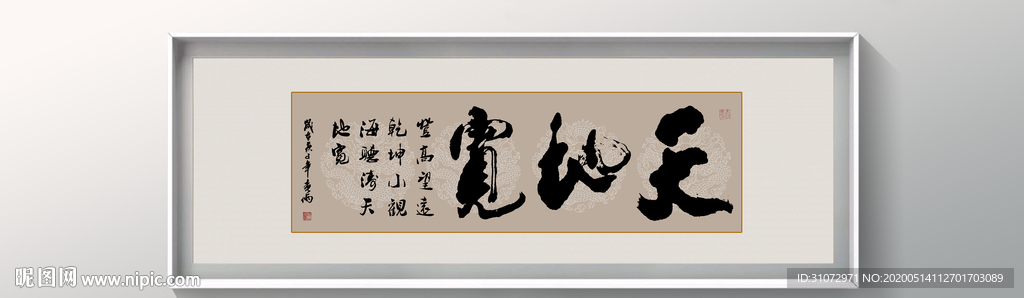 天地寬
登高望遠
乾坤小觀
海聽濤天
地寬
昵图网 www.nipic.com
ID:31072971 NO:20200514112701703089